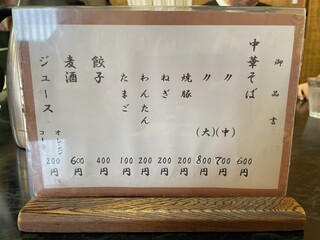 御品書
中華そば 600円
〃 (中) 700円
〃 (大) 800円
焼豚 200円
ねぎ 200円
わんたん 200円
たまご 100円
餃子 400円
麦酒 600円
ジュース オレンジ コーラ 200円